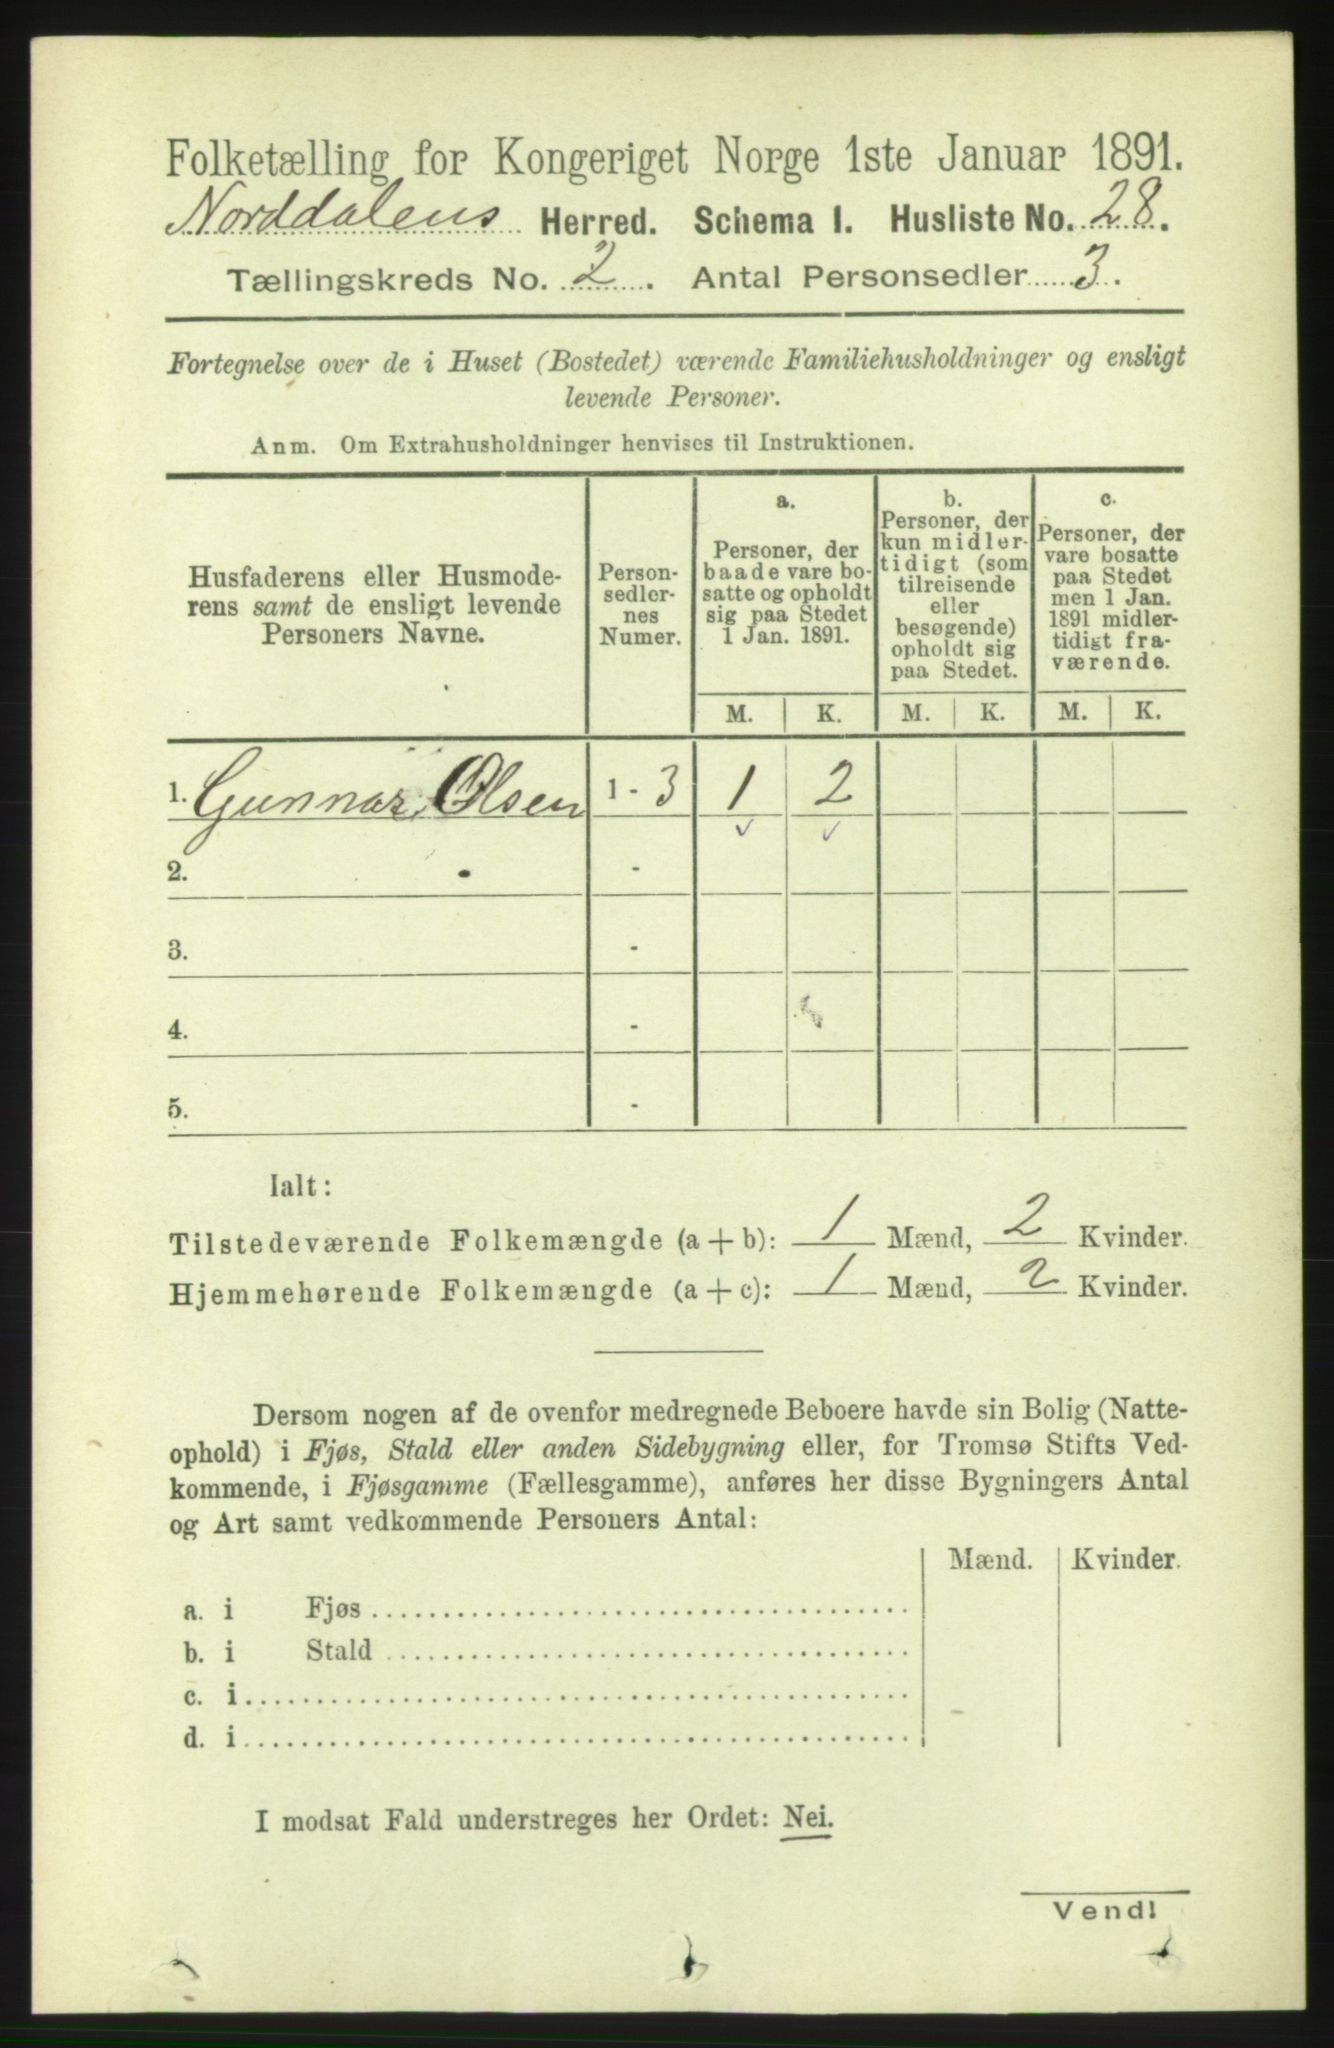 Folketælling for Kongeriget Norge 1ste Januar 1891.
Norddalens Herred. Schema I. Husliste No. 28.
Tællingskreds No. 2. Antal Personsedler 3.
Fortegnelse over de i Huset (Bostedet) værende Familiehusholdninger og ensligt
levende Personer.
Anm. Om Extrahusholdninger henvises til Instruktionen.
Husfaderens eller Husmode-
rens samt de ensligt levende
Personers Navne.
Person-
sedler-
nes
Numer.
a.
Personer, der
baade vare bo-
satte og opholdt
sig paa Stedet
1 Jan. 1891.
b.
Personer, der
kun midler-
tidigt (som
tilreisende
eller
besøgende)
opholdt sig
paa Stedet.
c.
Personer, der
vare bosatte
paa Stedet
men 1 Jan.
1891 midler-
tidigt fra-
værende.
M. K. M. K. M. K.
1. Gunnar Olsen 1 - 3 1 2
2. -
3. -
4. -
5. -
Ialt:
Tilstedeværende Folkemængde (a + b): 1 Mænd, 2 Kvinder.
Hjemmehørende Folkemængde (a + c): 1 Mænd, 2 Kvinder.
Dersom nogen af de ovenfor medregnede Beboere havde sin Bolig (Natte-
ophold) i Fjøs, Stald eller anden Sidebygning eller, for Tromsø Stifts Ved-
kommende, i Fjøsgamme (Fællesgamme), anføres her disse Bygningers Antal
og Art samt vedkommende Personers Antal:
Mænd. Kvinder.
a. i Fjøs
b. i Stald
c. i
d. i
I modsat Fald understreges her Ordet: Nei.
Vend!